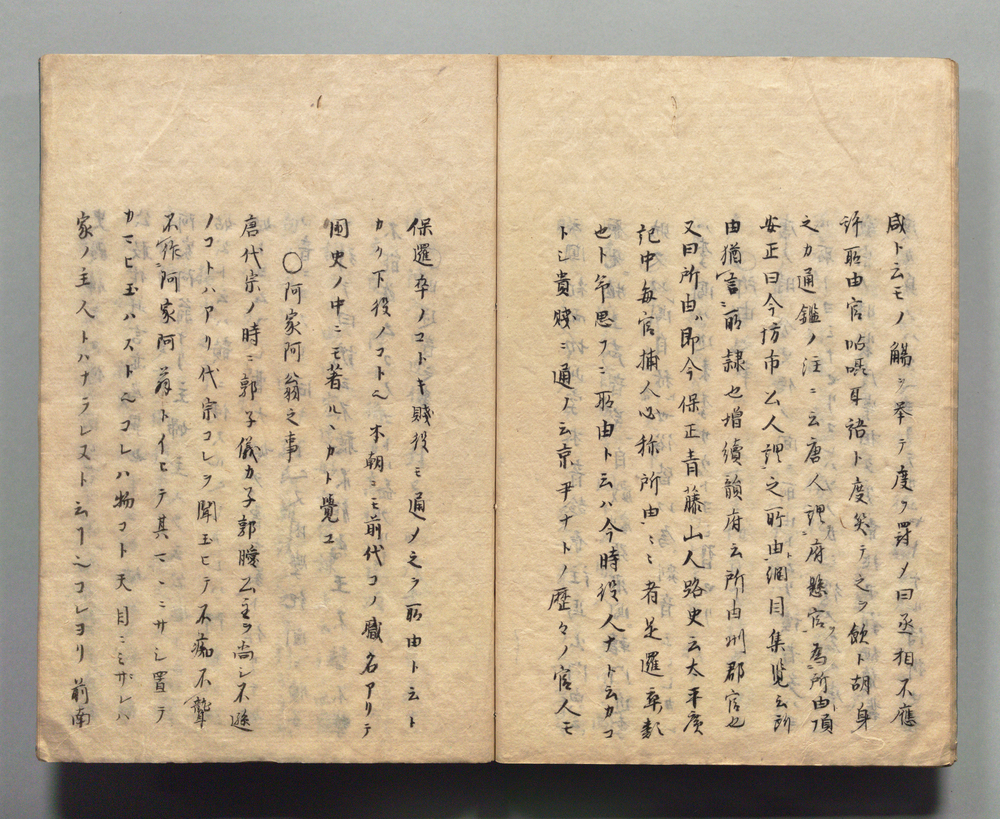 咸ト云モノ觴ヲ挙テ度ヲ罸メ曰丞相不應
許所由官呫囁耳語ト度笑テ之ヲ飲ト胡身
之カ通鑑ノ注ニ云唐人謂府縣官為所由項
安正曰今坊市公人謂之所由綱目集覧云所
由猶言所隷也増續韻府云所由州郡官也
又曰所由即今保正青藤山人路史云太平廣
記中毎官捕人必称所由ミミ者是邏卒類
也ト今思フニ所由ト云ハ今時役人ナト云カコ
トシ貴賤ニ通ノ云京尹ナトノ歴々ノ官人モ
保邏卒ノコトキ賤役ミ通ノ之ヲ所由ト云ト
カク下役ノコト也本朝ニモ前代コノ職名アリテ
國史ノ中ニモ著ルヽカト覺ユ
○阿家阿翁之事
唐代宗ノ時ニ郭子儀カ子郭曖公主ヲ尚シ不遜
ノコトハアリ代宗コレヲ聞玉ヒテ不痴不聾
不作阿家阿翁トイヒテ其マヽニサシ置テ
カマヒ玉ハスト也コレハ物コト天目ニミサレハ
家ノ主人トハナラレスト云コト也コレヨリ前南